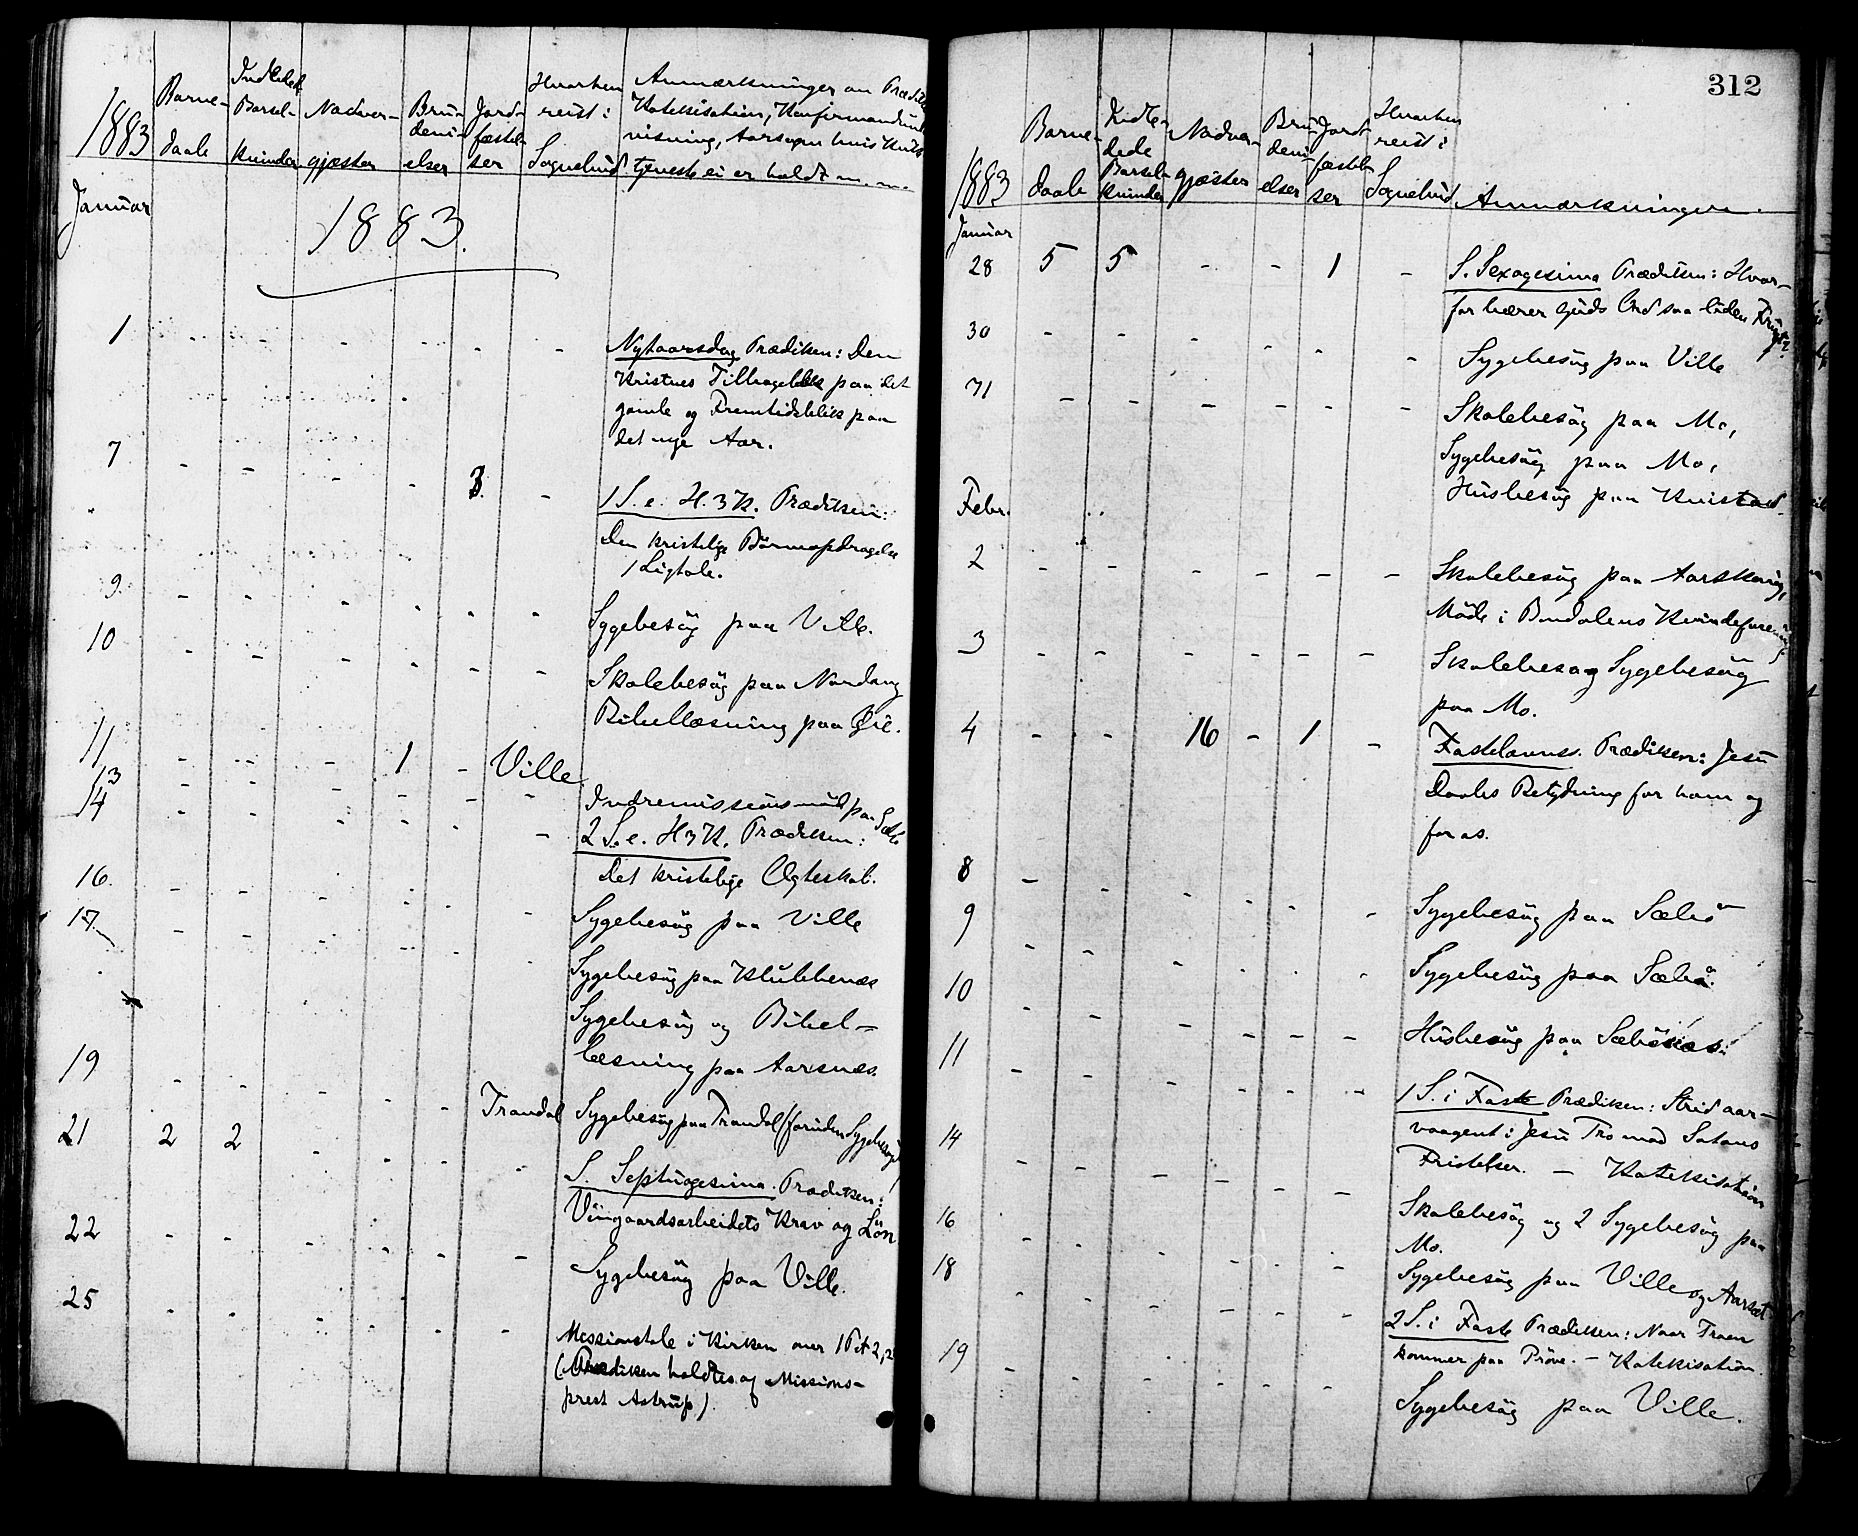 1883 Barne- Indledede Nadver- Bru- Jord- Hvorhen Anmærkninger om Prædik
daab Barsel- gjæster devi- fæstel- reist i Katekisation, Konfirmandund
kvinder elser ser Sognebud visning, Aarsagen hvis Guds
tjeneste ei er holdt m.m.
Januar
1883.
1 - - - - - - Nytaarsdag Prædiken: Den
Kristnes Tilbageblik paa det
gamle og Fremtidsblik paa
det nye Aar.
7 - - - - 3. - 1 S. e. H. 3 K. Prædiken:
Den kristelige Børneopdragelse
1 Ligtale.
9 - - - - - - Sygebesøg paa Ville.
10 - - - - - - Skolebesøg paa Nordang
Bibellæsning paa Øie.
11 - - - 1 - Ville
13 - - - - - - Indremissionsmøde paa Sæbø
14 - - - - - - 2 S. e. H 3 K. Prædiken:
Det kristelige Ægteskab.
16. - - - - - - Sygebesøg paa Ville
17. - - - - - - Sygebesøg paa Klubbenæs
Sygebesøg og Bibel-
læsning paa Aarsnæs.
19 - - - - - Trandal Sygebesøg paa Trandal (foruden Sygebesøg)
21 2 2 - - - - S. Septuagesima. Prædiken:
Viingaardsarbeidets Krav og Løn
22 - - - - - - Sygebesøg paa Ville.
25 - - - - - - Missionstale i Kirken over 1 Pet 2,
(Prædiken holdtes af Missions-
prest Astrup).
312
1883 Barne- Indle- Nadver- Bru- Jord- Hvorhen
daab dede gjæster devi- fæstel- reist i
Barsel- elser ser Sognebud Anmærkninger.
kvinder
Januar
28 5 5 - - 1 - S. Sexagesima Prædiken: Hvor-
for bærer Guds Ord saa liden Frugt?
30 - - - - - - Sygebesøg paa Ville
31 - - - - - - Skolebesøg paa Mo,
Sygebesøg paa Mo,
Husbesøg paa Kvistad.
Febr.
2 - - - - - - Skolebesøg paa Aarskoug,
Møde i Bondalens Kvindeforening.
3 - - - - - - Skolebesøg Sygebesøg
paa Mo.
4 - - 16 - 1 - Fastelavns. Prædiken: Jesu
Daabs Betydning for ham og
for os.
8 - - - - - - Sygebesøg paa Sæbø
9 - - - - - - Sygebesøg paa Sæbø.
10 - - - - - - Husbesøg paa Sæbønæs.
11 - - - - - - 1 S. i Faste Prædiken: Strid aar-
vaagent i Jesu Tro mod Satans
Fristelser. - Katekisation
14 - - - - - - Skolebesøg og 2 Sygebesøg paa
Mo.
16 - - - - - - Sygebesøg paa Ville og Aarsæt
18 - - - - - - 2 S. i Faste Prædiken: Naar Troen
kommer paa Prøve. - Katekisation.
19 - - - - - - Sygebesøg paa Ville.